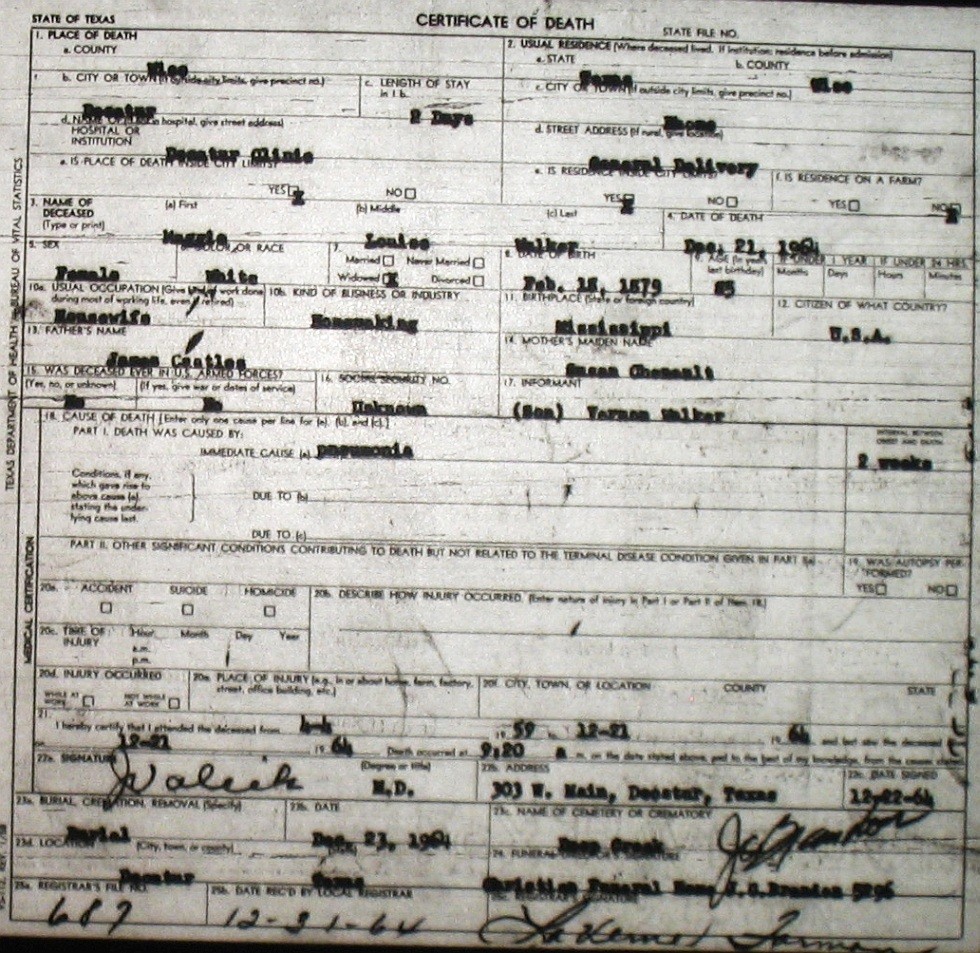 STATE OF TEXAS
CERTIFICATE OF DEATH
STATE FILE NO.
1. PLACE OF DEATH
a. COUNTY
Wise
2. USUAL RESIDENCE (Where deceased lived. If institution: residence before admission)
a. STATE
b. COUNTY
Wise
b. CITY OR TOWN (If outside city limits, give precinct no.)
Decatur
c. LENGTH OF STAY
in 1 b.
2 Days
c. CITY OR TOWN (If outside city limits, give precinct no.)
Rhome
d. NAME OF (If not in hospital, give street address)
HOSPITAL OR
INSTITUTION
Decatur Clinic
d. STREET ADDRESS (If rural, give location)
General Delivery
e. IS PLACE OF DEATH INSIDE CITY LIMITS?
YES X NO
e. IS RESIDENCE INSIDE CITY LIMITS?
YES X NO
f. IS RESIDENCE ON A FARM?
YES NO X
3. NAME OF
DECEASED
(Type or print)
(a) First
Maggie
(b) Middle
Louise
(c) Last
Walker
4. DATE OF DEATH
Dec. 21, 1964
5. SEX
Female
6. COLOR OR RACE
White
7.
Married Never Married
Widowed X Divorced
8. DATE OF BIRTH
Feb. 18, 1879
9. AGE (In years
last birthday)
85
IF UNDER 1 YEAR
Months Days
IF UNDER 24 HRS.
Hours Minutes
10a. USUAL OCCUPATION (Give kind of work done
during most of working life, even if retired)
Housewife
10b. KIND OF BUSINESS OR INDUSTRY
Homemaking
11. BIRTHPLACE (State or foreign country)
Mississippi
12. CITIZEN OF WHAT COUNTRY?
U.S.A.
13. FATHER'S NAME
James Castles
14. MOTHER'S MAIDEN NAME
Susan Chenault
15. WAS DECEASED EVER IN U.S. ARMED FORCES?
(Yes, no, or unknown)
No
(If yes, give war or dates of service)
No
16. SOCIAL SECURITY NO.
Unknown
17. INFORMANT
(Son) Vernon Walker
18. CAUSE OF DEATH [Enter only one cause per line for (a), (b), and (c).]
PART I. DEATH WAS CAUSED BY:
IMMEDIATE CAUSE (a) pneumonia
INTERVAL BETWEEN
ONSET AND DEATH
2 weeks
Conditions, if any,
which gave rise to
above cause (a),
stating the under-
lying cause last.
DUE TO (b)
DUE TO (c)
PART II. OTHER SIGNIFICANT CONDITIONS CONTRIBUTING TO DEATH BUT NOT RELATED TO THE TERMINAL DISEASE CONDITION GIVEN IN PART I(a)
19. WAS AUTOPSY PER-
FORMED?
YES NO
20a. ACCIDENT SUICIDE HOMICIDE
20b. DESCRIBE HOW INJURY OCCURRED. (Enter nature of injury in Part I or Part II of Item 18.)
20c. TIME OF
INJURY
Hour Month Day Year
a.m.
p.m.
20d. INJURY OCCURRED
WHILE AT
WORK
NOT WHILE
AT WORK
20e. PLACE OF INJURY (e.g., in or about home, farm, factory,
street, office building, etc.)
20f. CITY, TOWN, OR LOCATION COUNTY STATE
21.
I hereby certify that I attended the deceased from 4-4 19 59 to 12-21 19 64 and last saw the deceased
on 12-21 19 64 Death occurred at 9:20 a m. on the date stated above, and to the best of my knowledge, from the causes stated.
22a. SIGNATURE
(Degree or title)
M.D.
22b. ADDRESS
303 W. Main, Decatur, Texas
22c. DATE SIGNED
12-22-64
23a. BURIAL, CREMATION, REMOVAL (Specify)
Burial
23b. DATE
Dec. 23, 1964
23c. NAME OF CEMETERY OR CREMATORY
Deep Creek
23d. LOCATION (City, town, or county) (State)
Decatur
24. FUNERAL DIRECTOR'S SIGNATURE
Christian Funeral Home J.C. Brandon 5296
25a. REGISTRAR'S FILE NO.
687
25b. DATE REC'D BY LOCAL REGISTRAR
12-31-64
25c. REGISTRAR'S SIGNATURE
TEXAS DEPARTMENT OF HEALTH BUREAU OF VITAL STATISTICS
MEDICAL CERTIFICATION